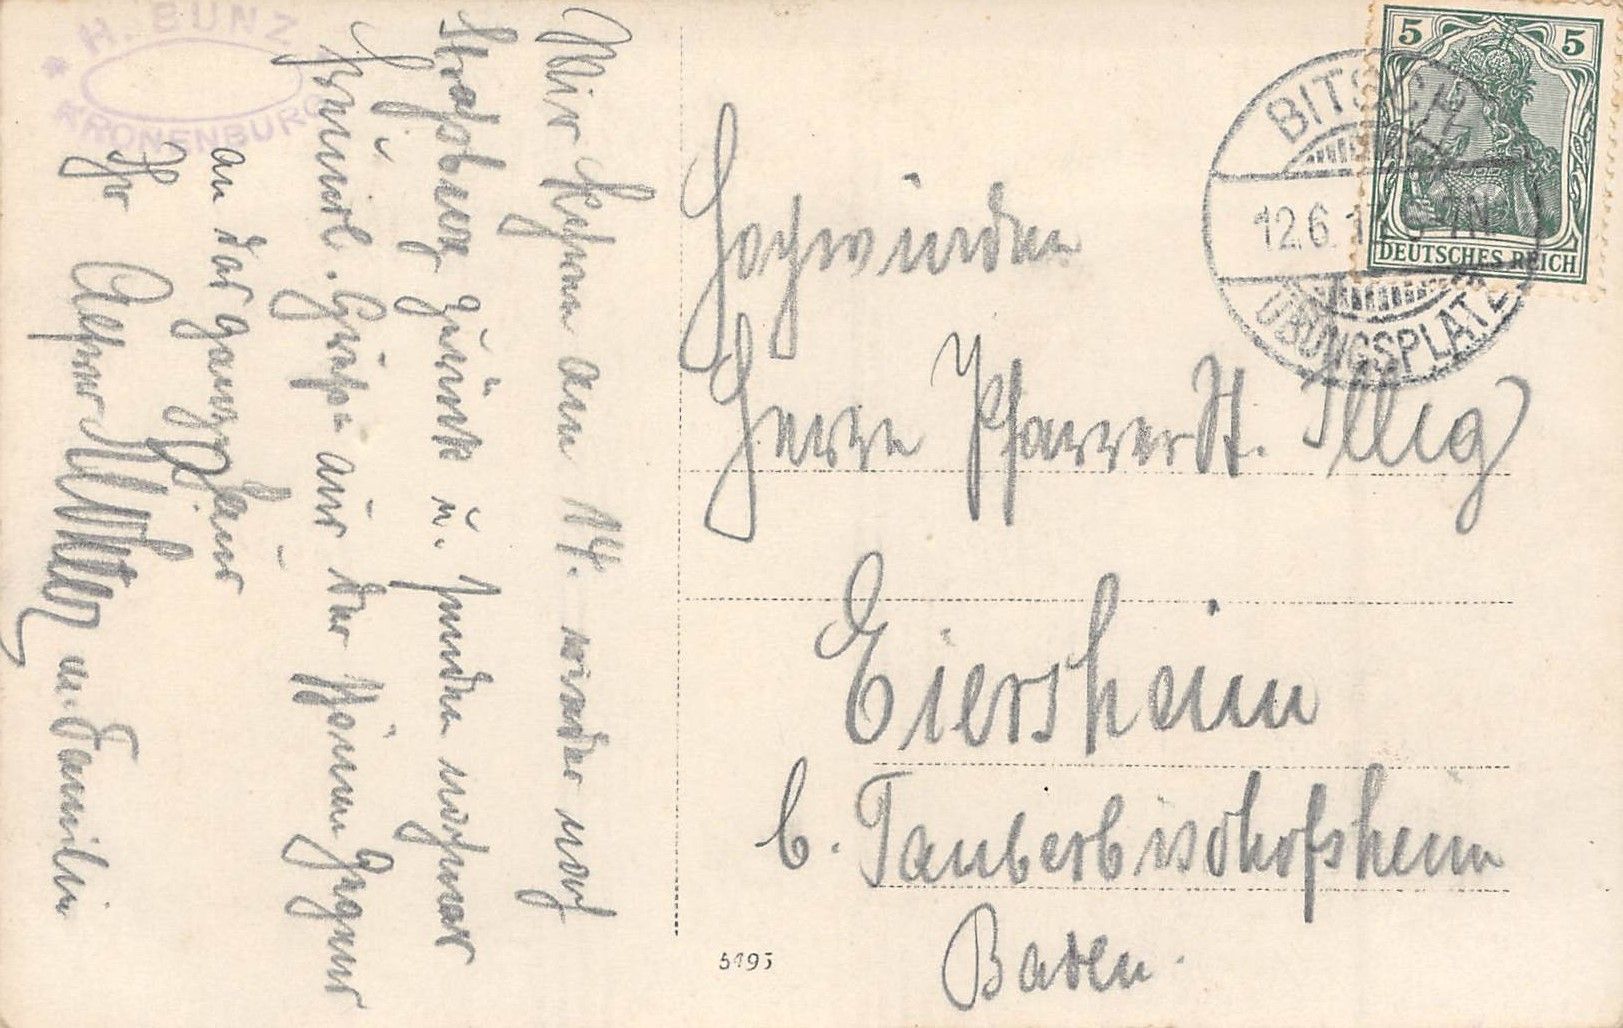 H. BUNZ
* KRONENBURG
Wir kehren am 14. wieder nach
Strassburg zurück u. senden nochmals
freundl. Grüsse aus der schönen Gegend
an das ganze Haus
Ihr
u. Familie
Hochwürden
Herrn Pfarrer St. Illig
Eiersheim
b. Tauberbischofsheim
Baden.
BITSCH
12.6.1
ÜBUNGSPLATZ
5 5
DEUTSCHES REICH
5195